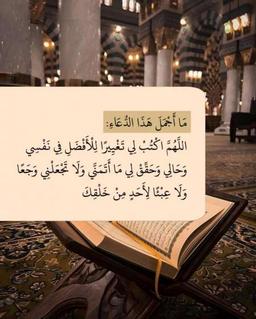 مَا أَجْمَلَ هَذَا الدُّعَاءِ:
اللَّهُمَّ اكْتُبْ لِي تَغْيِيرًا لِلْأَفْضَلِ فِي نَفْسِي
وَحَالِي وَحَقِّقْ لِي مَا أَتَمَنَّى وَلَا تَجْعَلْنِي وَجَعًا
وَلَا عِبْئًا لِأَحَدٍ مِنْ خَلْقِكَ